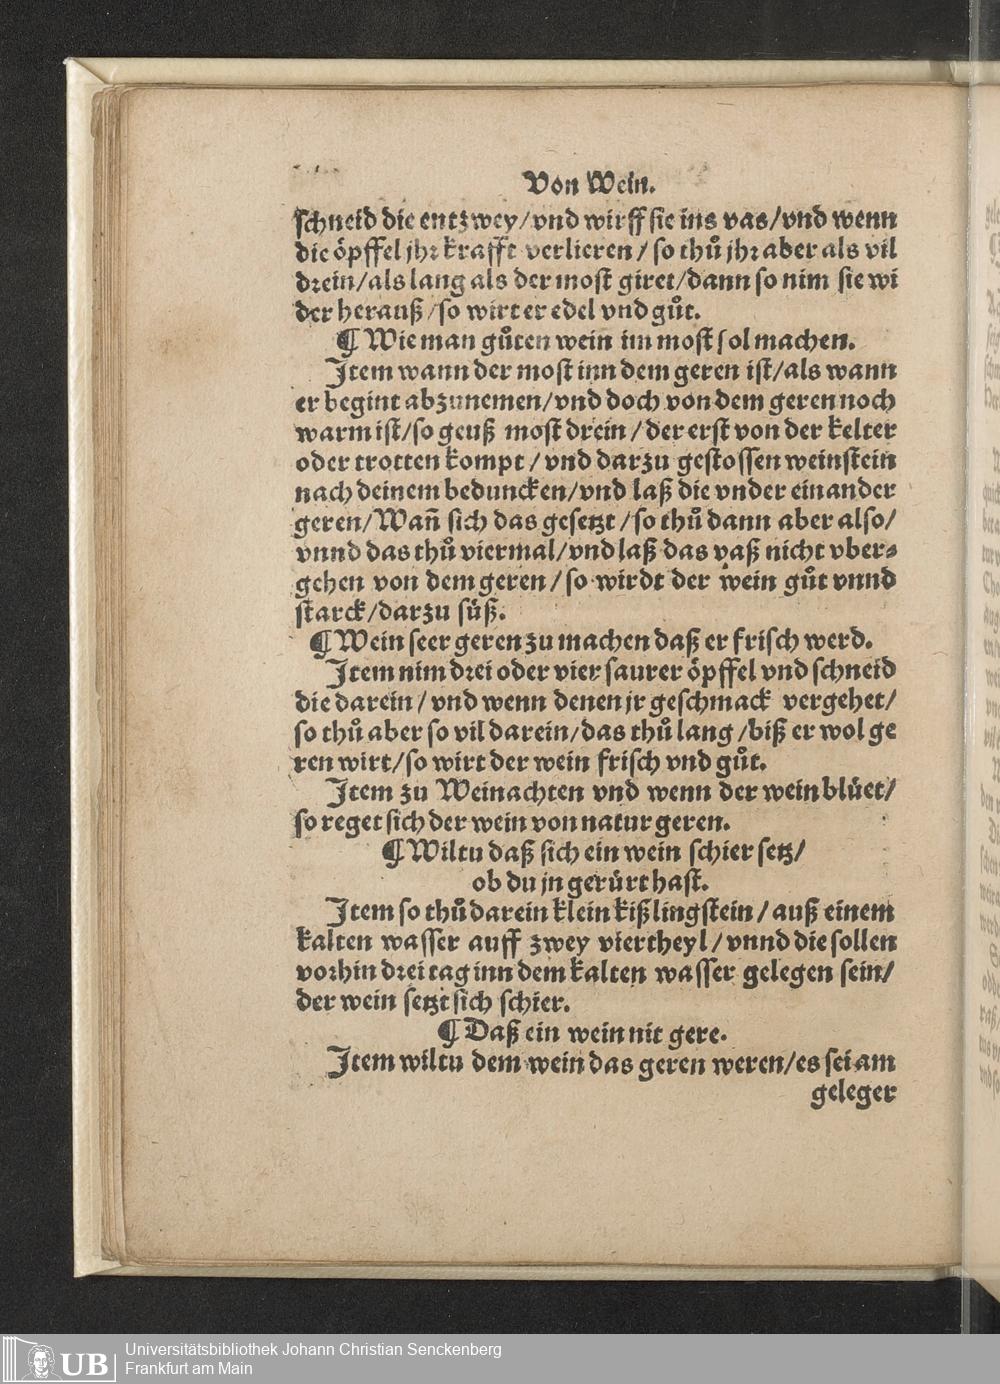 Von Wein.
schneid die entzwey/vnd wirff sie ins vas/vnd wenn
die öpffel jhr krafft verlieren/so thů jhr aber als vil
drein/als lang als der most giret/dann so nim sie wi
der herauß/so wirt er edel vnd gůt.
¶ Wie man gůten wein im most sol machen.
Item wann der most inn dem geren ist/als wann
er begint abzunemen/vnd doch von dem geren noch
warm ist/so geuß most drein/der erst von der kelter
oder trotten kompt/vnd darzu gestossen weinstein
nach deinem beduncken/vnd laß die vnder einander
geren/Wañ sich das gesetzt/so thů dann aber also/
vnnd das thů viermal/vnd laß das vaß nicht vber⸗
gehen von dem geren/so wirdt der wein gůt vnnd
starck/darzu süß.
¶ Wein seer geren zu machen daß er frisch werd.
Item nim drei oder vier saurer öpffel vnd schneid
die darein/vnd wenn denen jr geschmack vergehet/
so thů aber so vil darein/das thů lang/biß er wol ge
ren wirt/so wirt der wein frisch vnd gůt.
Item zu Weinachten vnd wenn der wein blüet/
so reget sich der wein von natur geren.
¶ Wiltu daß sich ein wein schier setz/
ob du jn gerürt hast.
Item so thů darein klein kißlingstein/auß einem
kalten wasser auff zwey viertheyl/vnnd die sollen
vorhin drei tag inn dem kalten wasser gelegen sein/
der wein setzt sich schier.
¶ Daß ein wein nit gere.
Item wiltu dem wein das geren weren/es sei am
geleger
UB Universitätsbibliothek Johann Christian Senckenberg
Frankfurt am Main